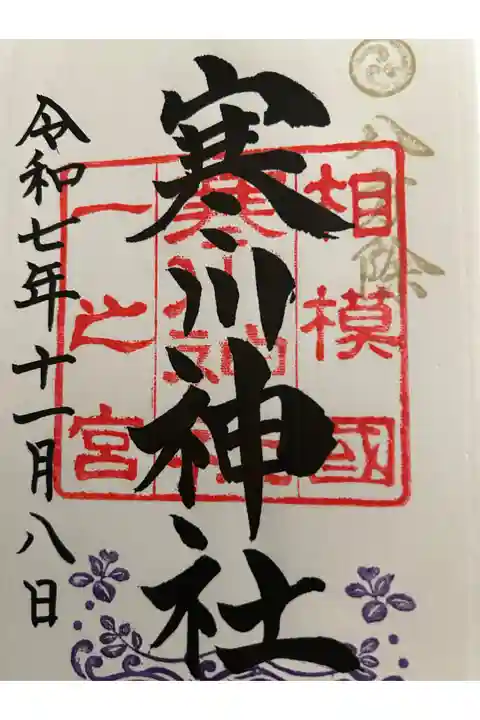 八方除
相模國
寒川神社
一之宮
寒川神社
令和七年十一月八日